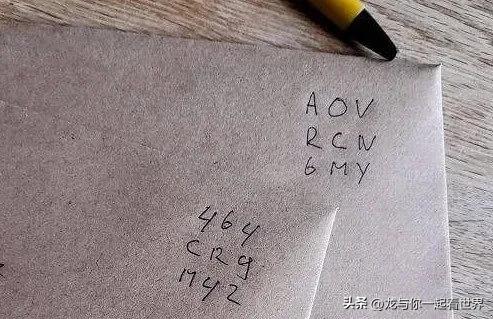 AOV
RCN
6MY
464
CR9
M42
头条 @龙与你一起看世界